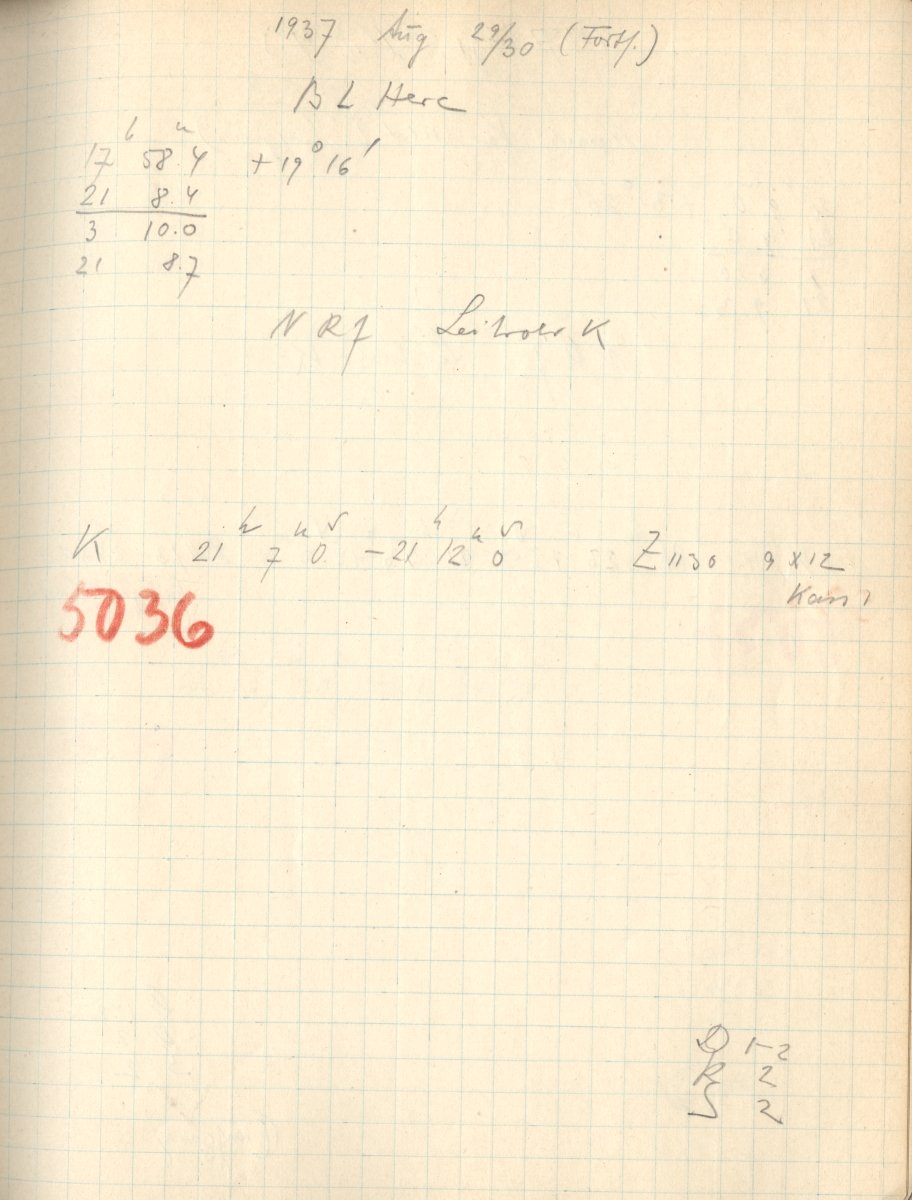 1937 Aug 29/30 (Forts.)
BL Herc
17h 58.4 +19° 16'
21 8.4
3 10.0
21 8.7
NRf Leitrohr K
K 21h 7m 0s – 21h 12m 0s Z 1130 9x12
Kass 1
5036
D 1-2
R 2
S 2